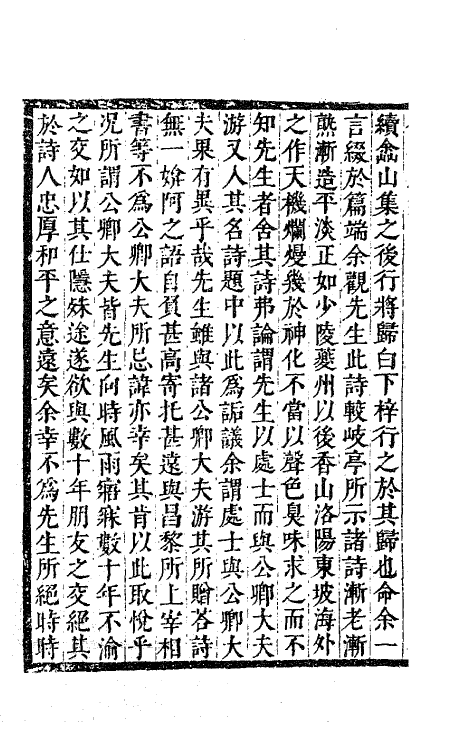 續嵞山集之後行將歸白下梓行之於其歸也命余一
言綴於篇端余觀先生此詩較岐亭所示諸詩漸老漸
熟漸造平淡正如少陵夔州以後香山洛陽東坡海外
之作天機爛熳幾於神化不當以聲色臭味求之而不
知先生者舍其詩弗論謂先生以處士而與公卿大夫
游又人其名詩題中以此為詬議余謂處士與公卿大
夫果有異乎哉先生雖與諸公卿大夫游其所贈荅詩
無一媕阿之語自負甚高寄托甚遠與昌黎所上宰相
書等不為公卿大夫所忌諱亦幸矣其肯以此取悅乎
况所謂公卿大夫皆先生向時風雨寤寐數十年不渝
之交如以其仕隱殊途遂欲與數十年朋友之交絕其
於詩人忠厚和平之意遠矣余幸不為先生所絕時時